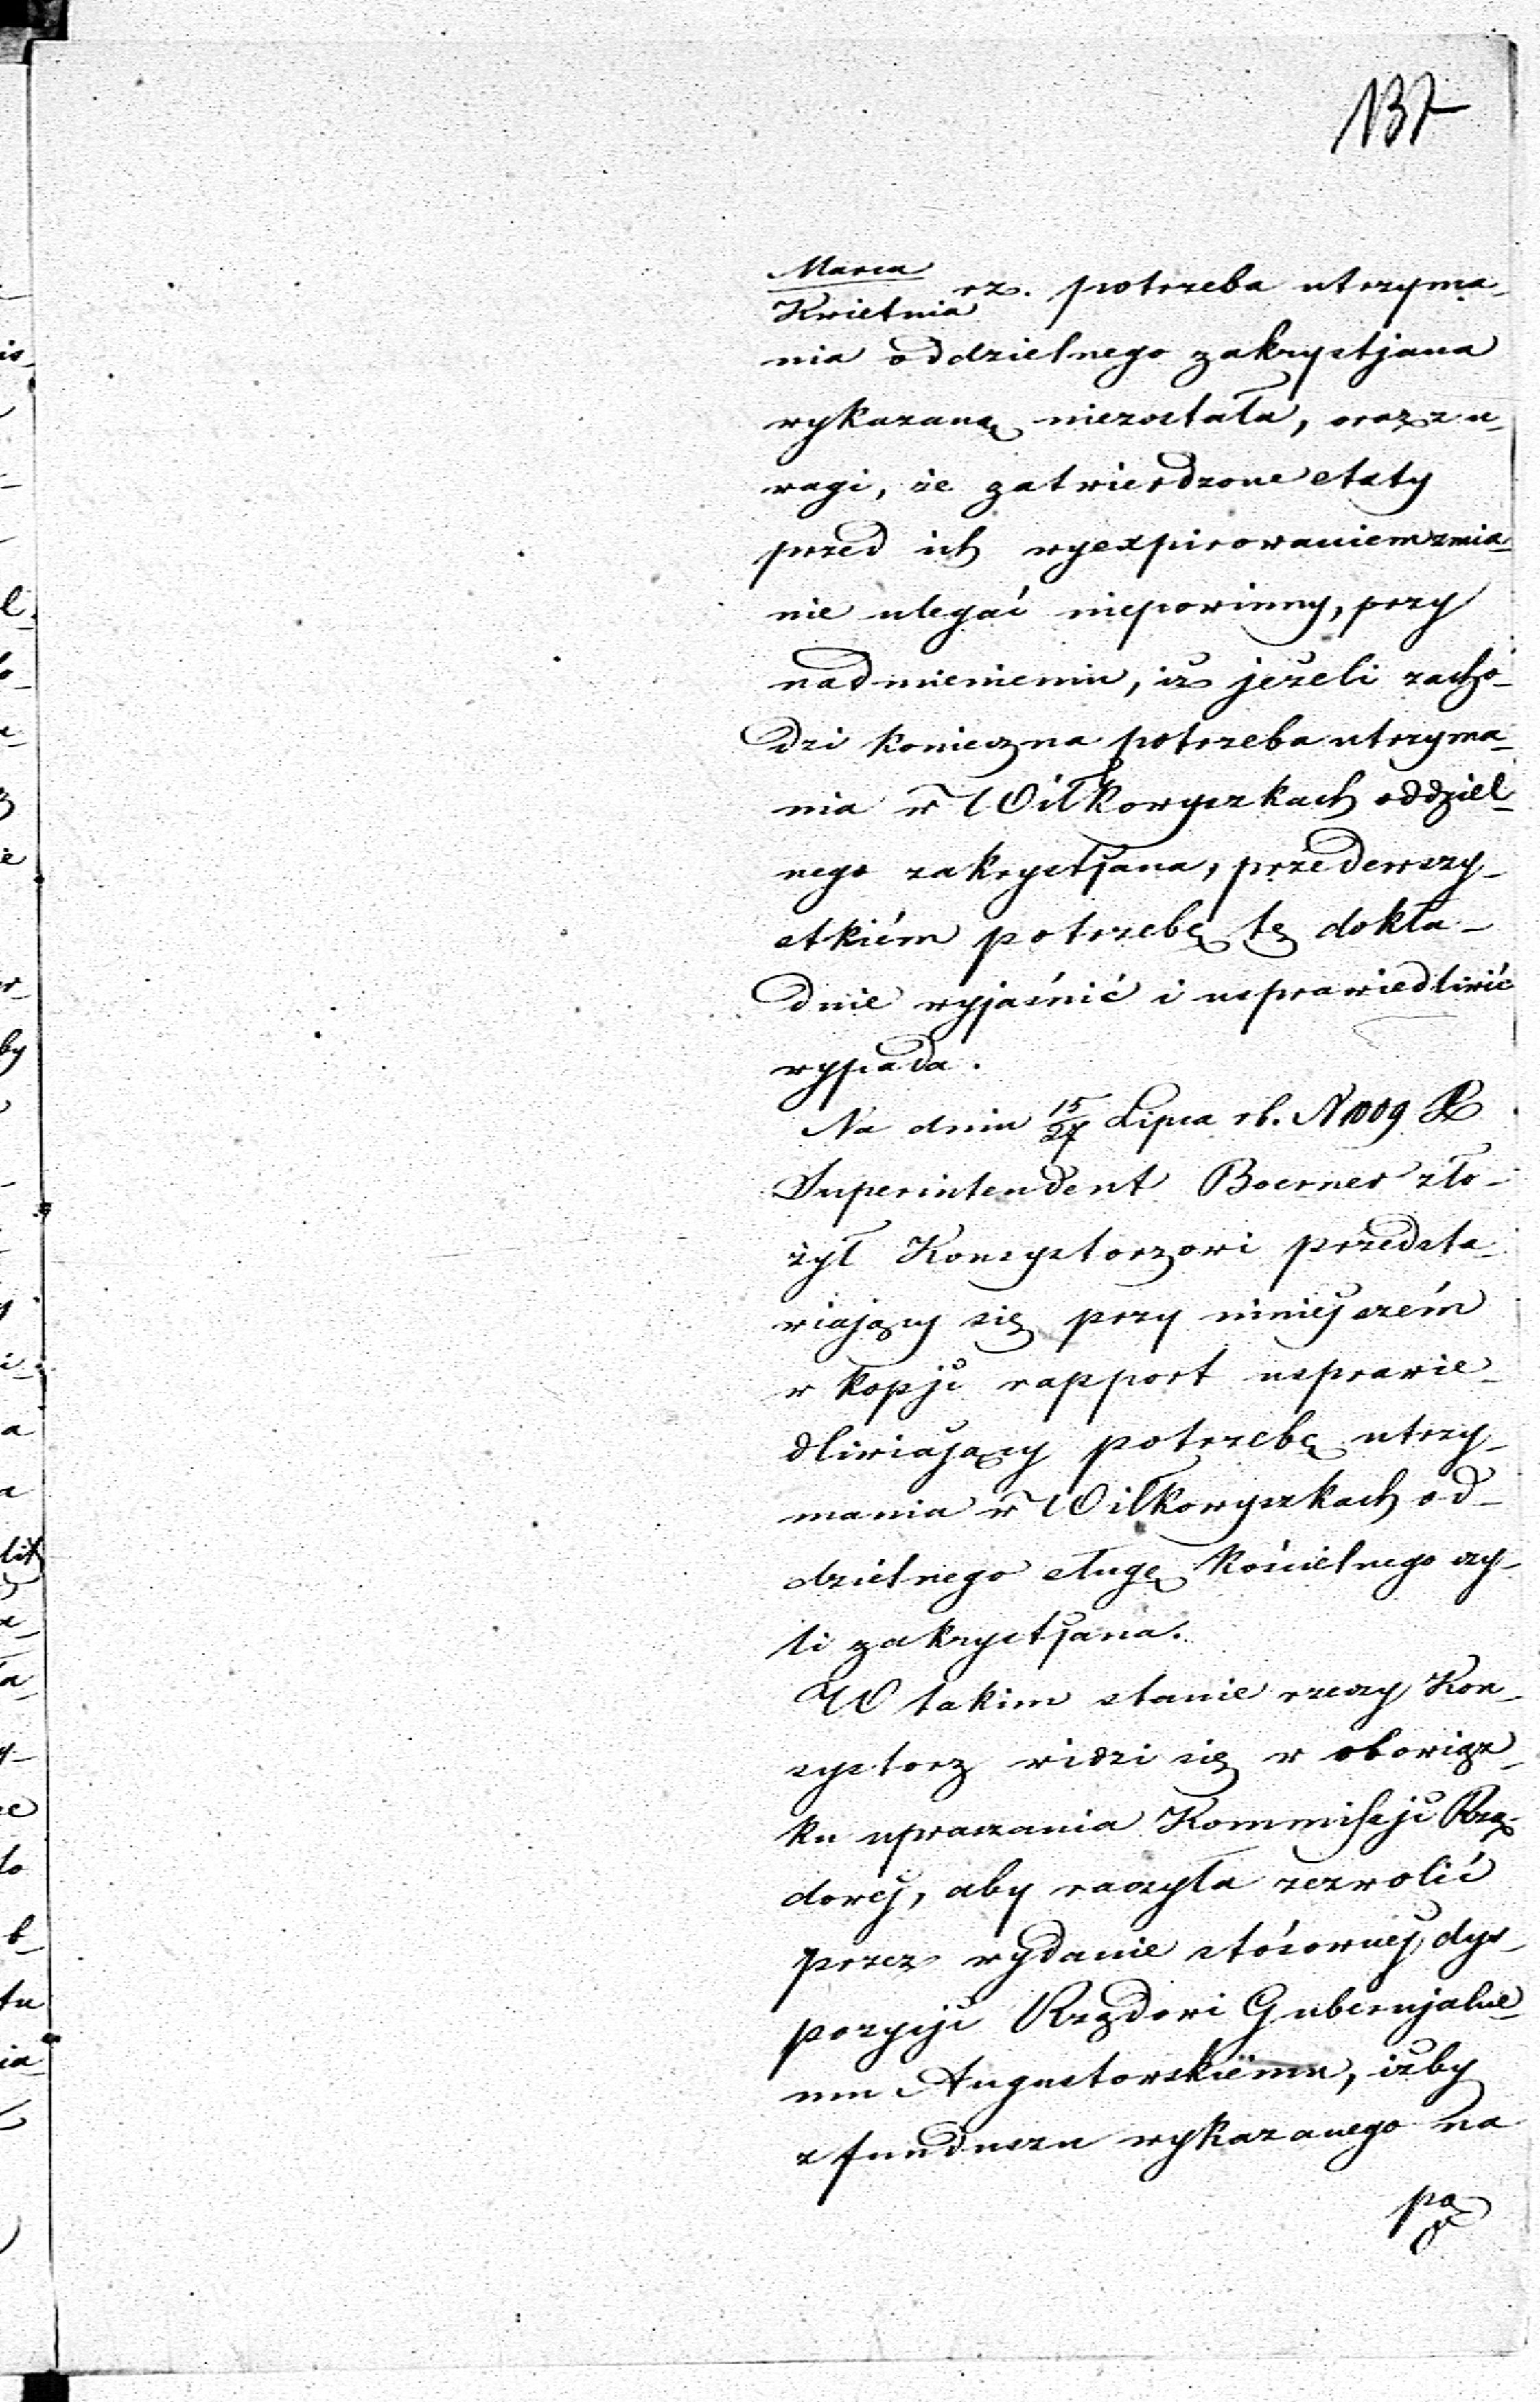 137
Marca
Kwietnia rz. potrzeba utrzyma-
nia oddzielnego zakrystjana
wykazaną niezostała, oraz z u-
wagi, że zatwierdzone etaty
przed ich wyexpirowaniem zmia-
nie ulegać niepowinny, przy
nadmienieniu, iż jeżeli zacho-
dzi konieczna potrzeba utrzyma-
nia w Wiłkowyszkach oddziel-
nego zakrystjana, przedewszy-
stkiém potrzebę tę dokła-
dnie wyjaśnić i usprawiedliwić
wypada.
Na dniu 15/27 Lipca rb. N 1009
Superintendent Boerner zło-
żył Konsystorzowi przedsta-
wiający się przy niniejszém
w kopji rapport usprawie-
dliwiający potrzebę utrzy-
mania w Wiłkowyszkach od-
dzielnego sługę kościelnego czy-
li zakrystjana.
W takim stanie rzeczy Kon-
systorz widzi się w obowiąz-
ku upraszania Kommissji Rzą-
dowej, aby raczyła zezwolić
przez wydanie stósownej dys-
pozycji Rządowi Gubernjalne-
mu Augustowskiému, iżby
z funduszu wykazanego na
po